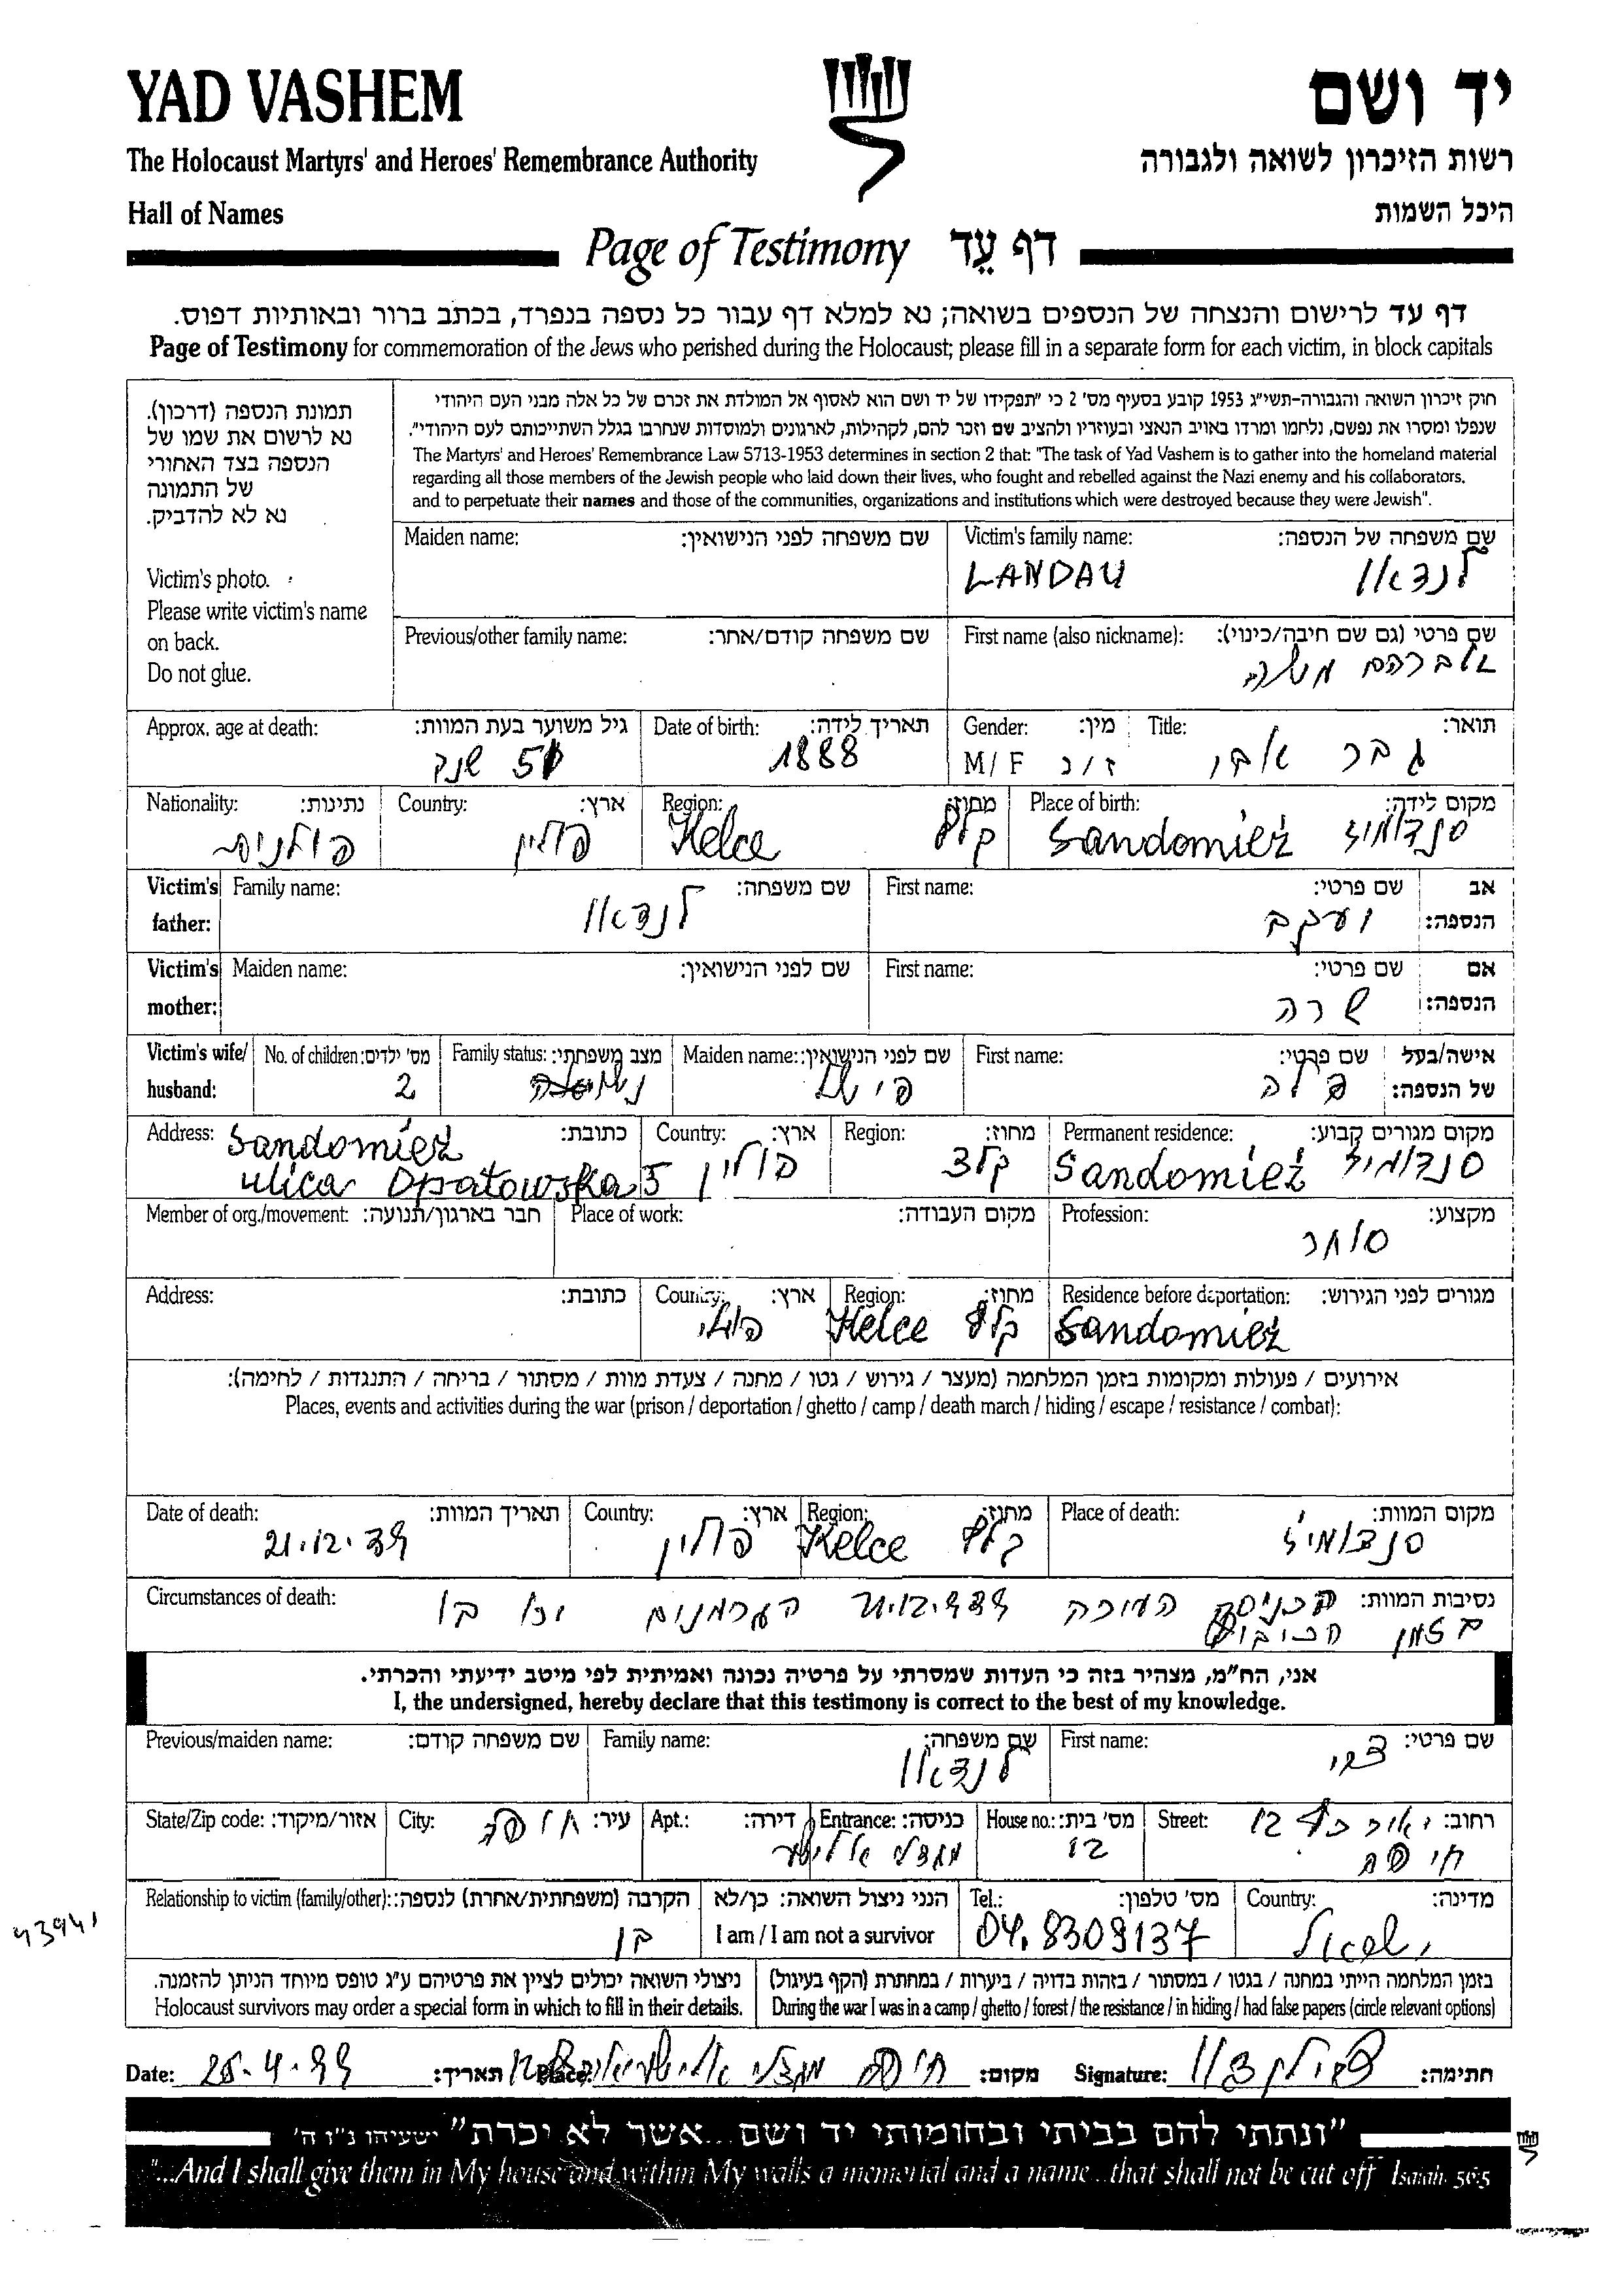 YAD VASHEM
יד ושם
The Holocaust Martyrs' and Heroes' Remembrance Authority
רשות הזיכרון לשואה ולגבורה
Hall of Names
היכל השמות
Page of Testimony דף עֵד
דף עד לרישום והנצחה של הנספים בשואה; נא למלא דף עבור כל נספה בנפרד, בכתב ברור ובאותיות דפוס.
Page of Testimony for commemoration of the Jews who perished during the Holocaust; please fill in a separate form for each victim, in block capitals
תמונת הנספה (דרכון).
נא לרשום את שמו של
הנספה בצד האחורי
של התמונה
נא לא להדביק.
Victim's photo.
Please write victim's name
on back.
Do not glue.
חוק זיכרון השואה והגבורה-תשי״ג 1953 קובע בסעיף מס' 2 כי "תפקידו של יד ושם הוא לאסוף אל המולדת את זכרם של כל אלה מבני העם היהודי
שנפלו ומסרו את נפשם, נלחמו ומרדו באויב הנאצי ובעוזריו ולהציב שם וזכר להם, לקהילות, לארגונים ולמוסדות שנחרבו בגלל השתייכותם לעם היהודי".
The Martyrs' and Heroes' Remembrance Law 5713-1953 determines in section 2 that: "The task of Yad Vashem is to gather into the homeland material
regarding all those members of the Jewish people who laid down their lives, who fought and rebelled against the Nazi enemy and his collaborators,
and to perpetuate their names and those of the communities, organizations and institutions which were destroyed because they were Jewish".
Maiden name: שם משפחה לפני הנישואין: Victim's family name: שם משפחה של הנספה:
LANDAU לנדאו
Previous/other family name: שם משפחה קודם/אחר: First name (also nickname): שם פרטי (גם שם חיבה/כינוי):
אברהם משה
Approx. age at death: גיל משוער בעת המוות: Date of birth: תאריך לידה: Gender: מין: Title: תואר:
51 שנה 1888 M/F ז/נ גבר
Nationality: נתינות: Country: ארץ: Region: מחוז: Place of birth: מקום לידה:
פולנית פולין Kelce קלץ Sandomież סנדומיז
Victim's father: Family name: שם משפחה: First name: שם פרטי: אב הנספה:
לנדאו יעקב
Victim's mother: Maiden name: שם לפני הנישואין: First name: שם פרטי: אם הנספה:
שרה
Victim's wife/ husband: No. of children: מס' ילדים: Family status: מצב משפחתי: Maiden name: שם לפני הנישואין: First name: שם פרטי: אישה/בעל של הנספה:
2
Address: כתובת: Country: ארץ: Region: מחוז: Permanent residence: מקום מגורים קבוע:
Sandomież
ulica Opatowska 5 פולין קלצ Sandomież סנדומיז
Member of org./movement: חבר בארגון/תנועה: Place of work: מקום העבודה: Profession: מקצוע:
סוחר
Address: כתובת: Country: ארץ: Region: מחוז: Residence before deportation: מגורים לפני הגירוש:
Kelce קלץ Sandomież
אירועים / פעולות ומקומות בזמן המלחמה (מעצר / גירוש / גטו / מחנה / צעדת מוות / מסתור / בריחה / התנגדות / לחימה):
Places, events and activities during the war (prison / deportation / ghetto / camp / death march / hiding / escape / resistance / combat):
Date of death: תאריך המוות: Country: ארץ: Region: מחוז: Place of death: מקום המוות:
21.12.39 פולין Kelce קלץ סנדומיז
Circumstances of death: נסיבות המוות:
הגרמנים
בזמן
אני, הח״מ, מצהיר בזה כי העדות שמסרתי על פרטיה נכונה ואמיתית לפי מיטב ידיעתי והכרתי.
I, the undersigned, hereby declare that this testimony is correct to the best of my knowledge.
Previous/maiden name: שם משפחה קודם: Family name: שם משפחה: First name: שם פרטי:
לנדאו צבי
State/Zip code: אזור/מיקוד: City: עיר: Apt.: דירה: Entrance: כניסה: House no.: מס' בית: Street: רחוב:
חיפה 12 12
חיפה
Relationship to victim (family/other): הקרבה (משפחתית/אחרת) לנספה: הנני ניצול השואה: כן/לא Tel.: מס' טלפון: Country: מדינה:
בן I am / I am not a survivor 04.8309137 ישראל
43941
ניצולי השואה יכולים לציין את פרטיהם ע״ג טופס מיוחד הניתן להזמנה.
Holocaust survivors may order a special form in which to fill in their details.
בזמן המלחמה הייתי במחנה / בגטו / במסתור / בזהות בדויה / ביערות / במחתרת (הקף בעיגול)
During the war I was in a camp / ghetto / forest / the resistance / in hiding / had false papers (circle relevant options)
Date: תאריך: Place: חיפה מקום: Signature: חתימה:
"ונתתי להם בביתי ובחומותי יד ושם...אשר לא יכרת" ישעיהו נ״ו ה'
"...And I shall give them in My house and within My walls a memorial and a name...that shall not be cut off" Isaiah 56:5